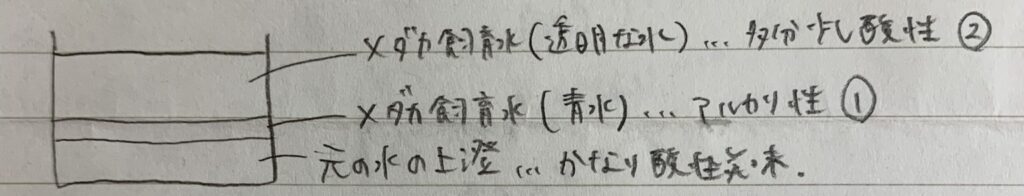 メダカ飼育水(透明な水)…多分少し酸性 ②
メダカ飼育水(青水)…アルカリ性 ①
元の水の上澄…かなり酸性気味.